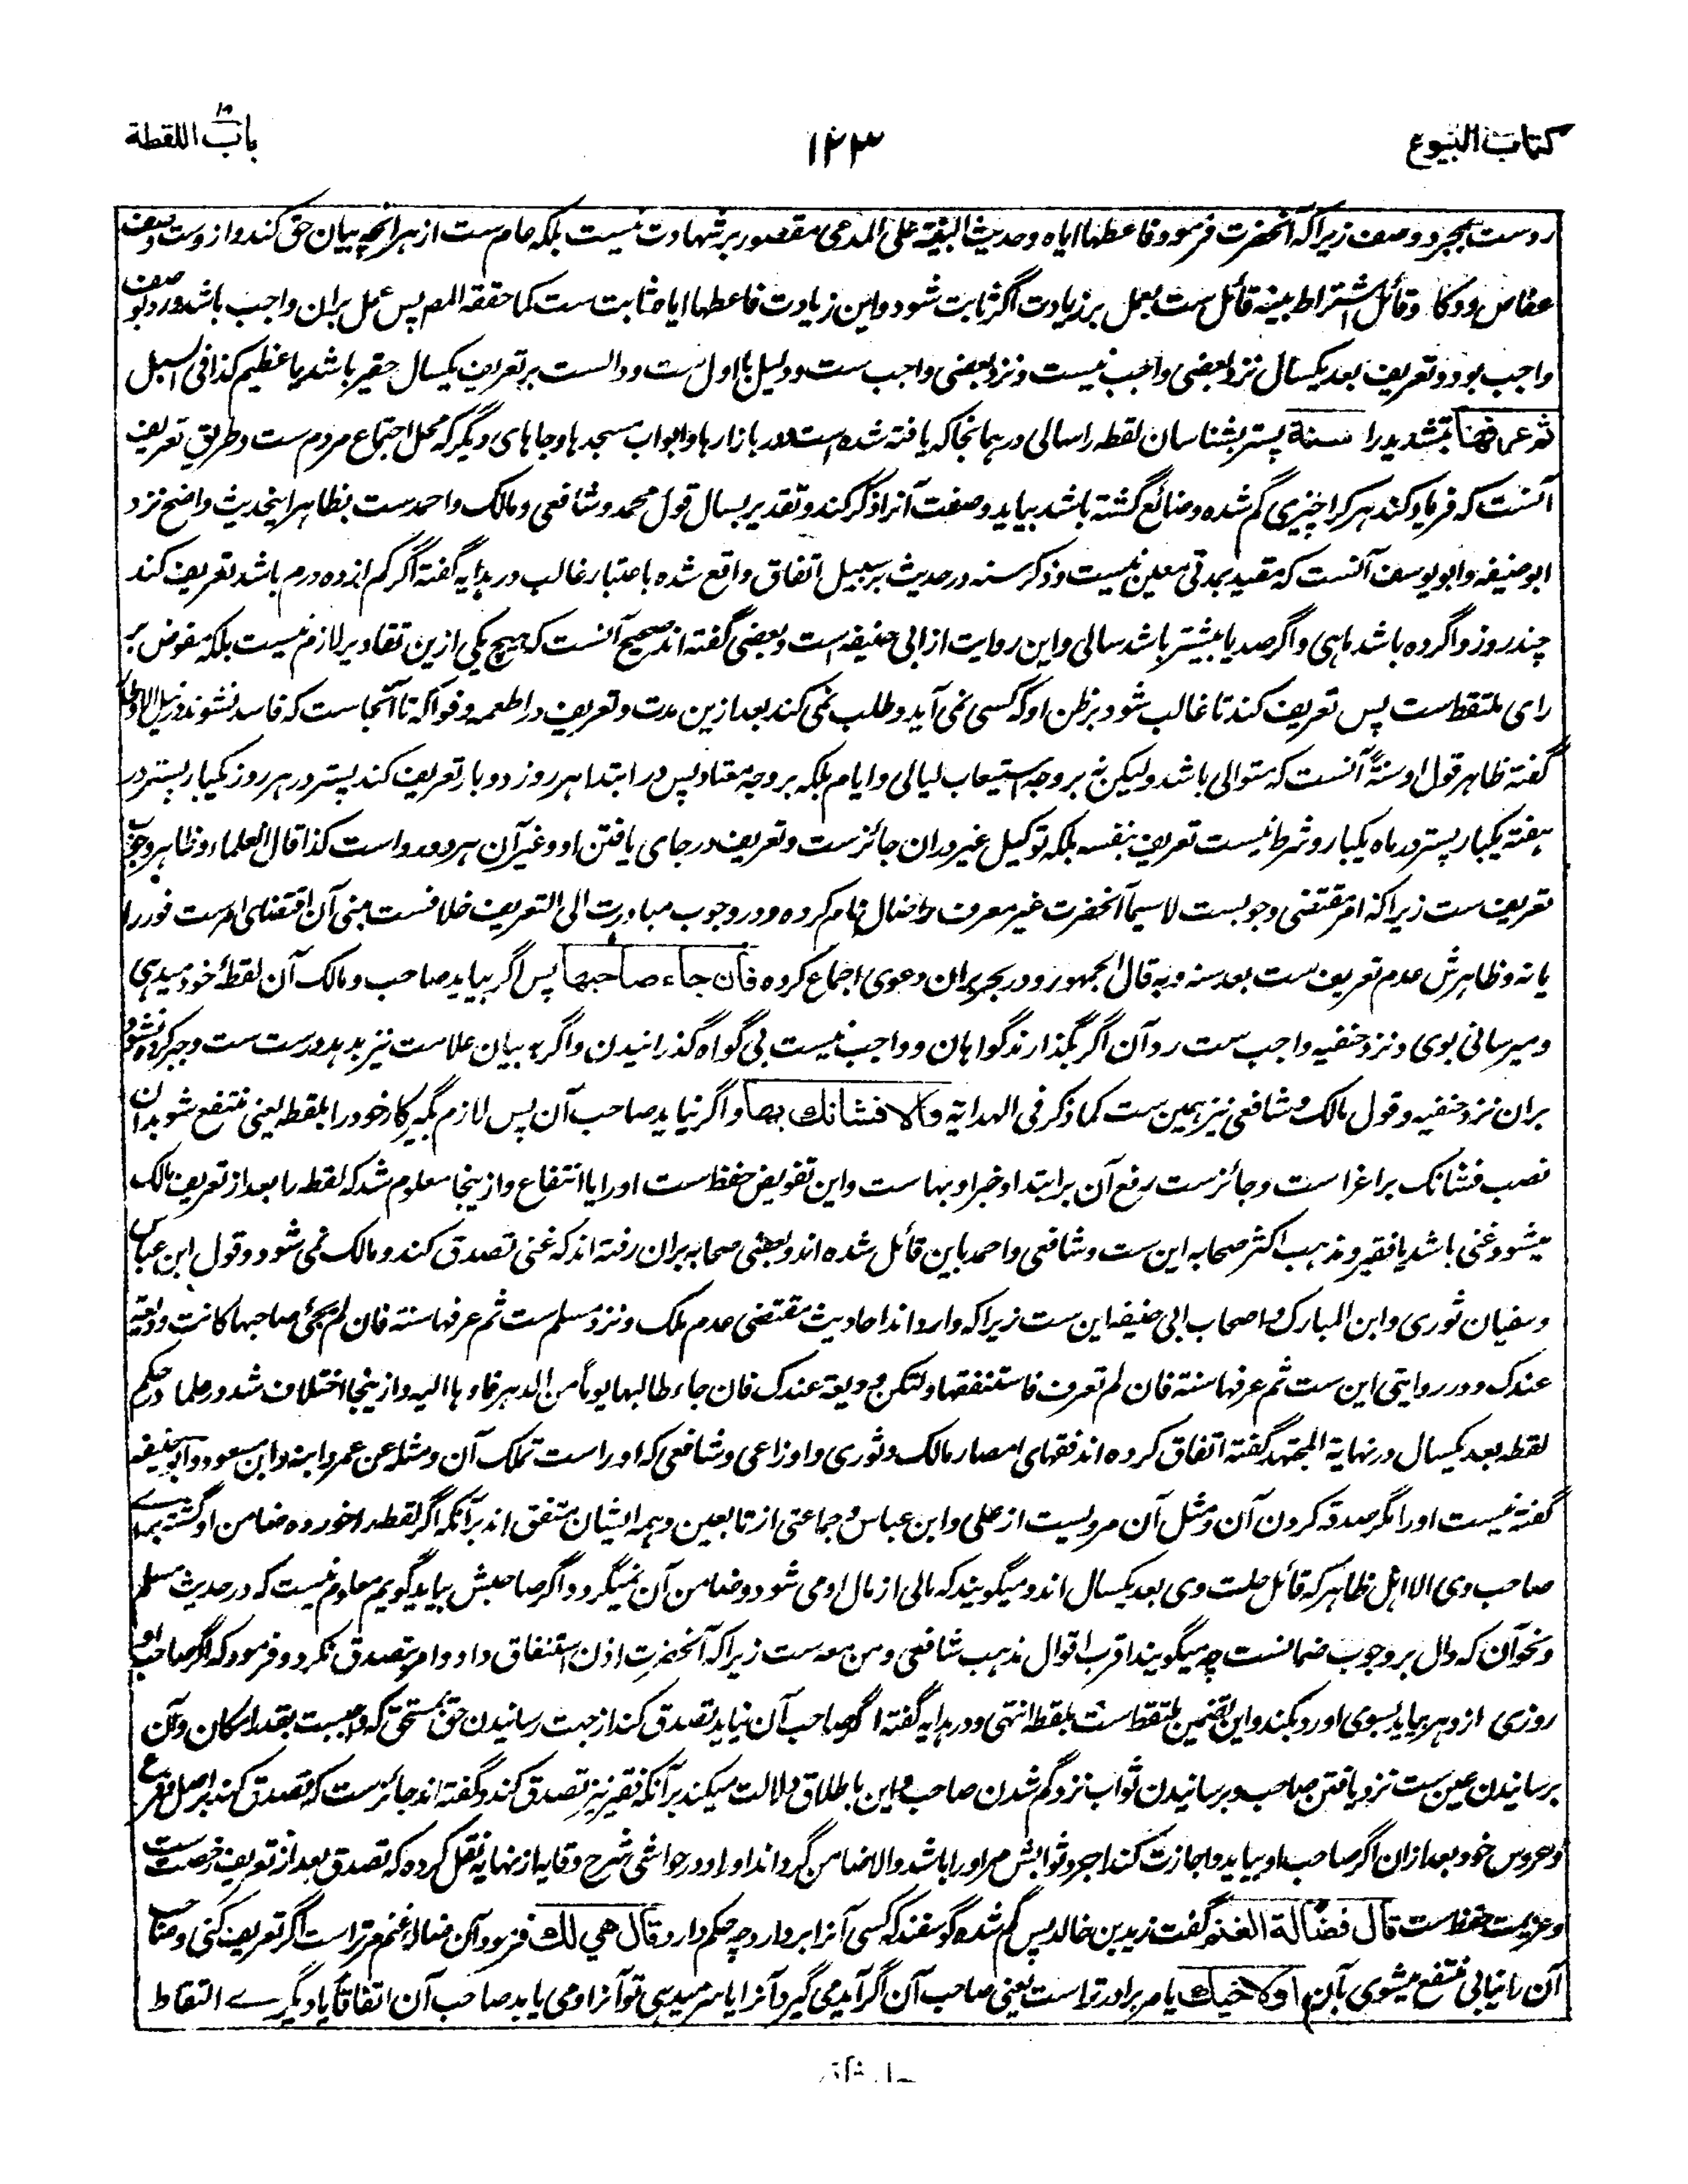 کتاب البیوع
۱۲۳
باب اللقطة
رد ست بمجرد وصف زیرا که آنحضرت فرمود فاعطها ایاه و حدیث البینة علی المدعی مقصور بر شهادت نیست بلکه عام ست از هر انچه بیان حق کند و از وست وصف
عفاص و وکا و قائل اشتراط بینه قائل ست بعمل بر زیادت اگر ثابت شود و این زیادت فاعطها ایاه ثابت ست کما حققه المص پس عمل بران واجب باشد و رد بوصف
واجب بود و تعریف بعد یکسال نزد بعضی واجب نیست و نزد بعضی واجب ست و دلیل با اول ست و دالست بر تعریف یکسال حقیر باشد یا عظیم کذا فی السبل
ثم عرفها بتشدید را سنة پستر بشناسان لقطه را سالی در همانجا که یافته شده است و در بازارها و ابواب مسجدها و جاهای دیگر که محل اجتماع مردم ست و طریق تعریف
آنست که فریاد کند هر کرا چیزی گم شده و ضائع گشته باشد بیاید و صفت آنرا ذکر کند و تقدیر بسال قول محمد و شافعی و مالک و احمد ست بظاهر اینحدیث واضح نزد
ابوحنیفه و ابویوسف آنست که مقید بمدتی معین نیست و ذکر سنه در حدیث بر سبیل اتفاق واقع شده باعتبار غالب در هدایه گفته اگر کم از ده درم باشد تعریف کند
چند روز و اگر ده باشد ماهی و اگر صد یا بیشتر باشد سالی و این روایت از ابی حنیفه است و بعضی گفته اند صحیح آنست که هیچ یکی ازین تقادیر لازم نیست بلکه مفوض بر
رای ملتقط ست پس تعریف کند تا غالب شود بر ظن او که کسی نمی آید و طلب نمی کند بعد ازین مدت و تعریف در اطعمه و فواکه تا آنجاست که فاسد نشوند در نیل الاوطار
گفته ظاهر قول او سنةً آنست که متوالی باشد ولیکن نه بر وجه استیعاب لیالی و ایام بلکه بر وجه معتاد پس در ابتدا هر روز دو بار تعریف کند پستر در هر روز یکبار پستر در
هفته یکبار پستر در ماه یکبار و شرط نیست تعریف بنفسه بلکه توکیل غیر دران جائز ست و تعریف در جای یافتن او و غیر آن هر دو رواست کذا قال العلماء و ظاهر وجوب
تعریف ست زیرا که امر مقتضی وجوبست لاسیما آنحضرت غیر معرف را ضال نام کرده و در وجوب مبادرت الی التعریف خلافست مبنی آن اقتضای امر ست فور را
یا نه و ظاهرش عدم تعریف ست بعد سنه و به قال الجمهور و در بحر بران دعوی اجماع کرده فان جاء صاحبها پس اگر بیاید صاحب و مالک آن لقطهٔ خود میدهی
و میرسانی بوی و نزد حنفیه واجب ست رد آن اگر بگذارند گواهان و واجب نیست بی گواه گذرانیدن و اگر به بیان علامت نیز بدهد درست ست و جبر کرده نشود
بران نزد حنفیه و قول مالک و شافعی نیز همین ست کما ذکر فی الهدایة والا فشانك بها و اگر نیاید صاحب آن پس لازم بگیر کار خود را بلقطه یعنی منتفع شو بدان
نصب فشانک بر اغراست و جائز ست رفع آن بر ابتدا و خبر او بهاست و این تفویض حفظ ست او را یا انتفاع و ازینجا معلوم شد که لقطه را بعد از تعریف مالک
میشود غنی باشد یا فقیر و مذهب اکثر صحابه این ست و شافعی و احمد باین قائل شده اند و بعضی صحابه بران رفته اند که غنی تصدق کند و مالک نمی شود و قول ابن عباس
و سفیان ثوری و ابن المبارک و اصحاب ابی حنیفه این ست زیرا که وارد اند احادیث مقتضی عدم ملک و نزد مسلم ست ثم عرفها سنة فان لم یجئ صاحبها کانت ودیعة
عندک و در روایتی این ست ثم عرفها سنة فان لم تعرف فاستنفقها ولتکن ودیعة عندک فان جاء طالبها یوماً من الدهر فادها الیه و ازینجا اختلاف شد در علما در حکم
لقطه بعد یکسال در نهایة المجتهد گفته اتفاق کرده اند فقهای امصار مالک و ثوری و اوزاعی و شافعی که او راست تملک آن و مثله عن عمر و ابنه و ابن مسعود و ابوحنیفه
گفته نیست او را مگر صدقه کردن آن و مثل آن مرویست از علی و ابن عباس و جماعتی از تابعین و همه ایشان متفق اند بر آنکه اگر لقطه را خورده ضامن او گشته بهای
صاحب وی الا اهل ظاهر که قائل حلت وی بعد یکسال اند و میگویند که مالی از مال او می شود و ضامن آن نمیگردد اگر صاحبش بیاید گویم معلوم نیست که در حدیث مسلم
و نحو آن که دال بر وجوب ضمانست چه میگویند اقرب اقوال مذهب شافعی و من معه ست زیرا که آنحضرت اذن استنفاق داد و امر بتصدق نکرد و فرمود که اگر صاحب او
روزی از دهر بیاید بسوی او رد بکند و این تضمین ملتقط ست بلقطه انتهی و در هدایه گفته اگر صاحب آن نیاید تصدق کند از جهت رسانیدن حق بمستحق که واجبست بقدر امکان و آن
برسانیدن عین ست نزد یافتن صاحب و برسانیدن ثواب نزد گم شدن صاحب و این باطلاق دلالت میکند بر آنکه فقیر نیز تصدق کند و گفته اند جائز ست که تصدق کند بر اصل و فرع
و عروس خود بعد ازان اگر صاحب او بیاید و اجازت کند اجر و ثوابش مر او را باشد والا ضامن گرداند او را و در حواشی شرح وقایه از نهایه نقل کرده که تصدق بعد از تعریف رخصت ست
و عزیمت حفظ ست قال فضالة الغنم گفت زید بن خالد پس گم شده گوسفند که کسی آنرا بردارد چه حکم دارد قال هي لك فرمود آن ضاله غنم مر تراست اگر تعریف کنی و صاحب
آن را نیابی منتفع میشوی بآن او لاخيك یا مر برادر تراست یعنی صاحب آن اگر آید می گیرد آنرا یا سر میدهی تو آنرا و می یابد صاحب آن اتفاقاً یا دیگرے التقاط